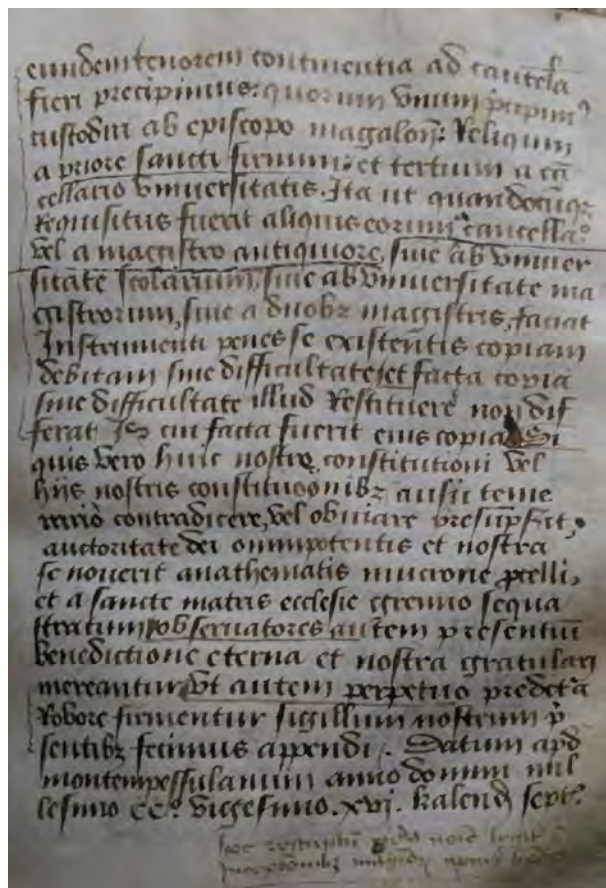 eundem tenorem continentia ad cautelā
fieri precipimus: quorum vnum p̄cipim᷒
custodiri ab episcopo magalon̄: Reliquum
a priore sancti firmini: et tertium a cā
cellario vniuersitatis. Ita ut quandocūqꝫ
Requisitus fuerit aliquis eorum a cancella.º
vel a magistro antiquiore, siue ab vniuer
sitate scolarium, siue ab vniuersitate ma
gistrorum, siue a duobꝫ magistris, faciat
Instrumenti penes se existentis copiam
debitam sine difficultate, et facta copia
sine difficultate illud Restituere non dif
ferat Is cui facta fuerit eius copia Si
quis vero huic nostre constitutioni vel
hiis nostris constitucionibꝫ ausu teme
rario contradicere, vel obuiare presūpserit,
auctoritate dei omnipotentis et nostra
se nouerit anathematis mucrone ꝑcelli,
et a sancte matris ecclesie gremio sequa
stratum obseruatores autem presentiū
benedictione eterna et nostra gratulari
mereantur, Vt autem perpetuo predicta
Robore firmentur sigillum nostrum p̄
sentibꝫ fecimus appendi. Datum apd
montempessulanum anno domini mil
lesimo CC.º vigesimo. xvj. kalend sept.º